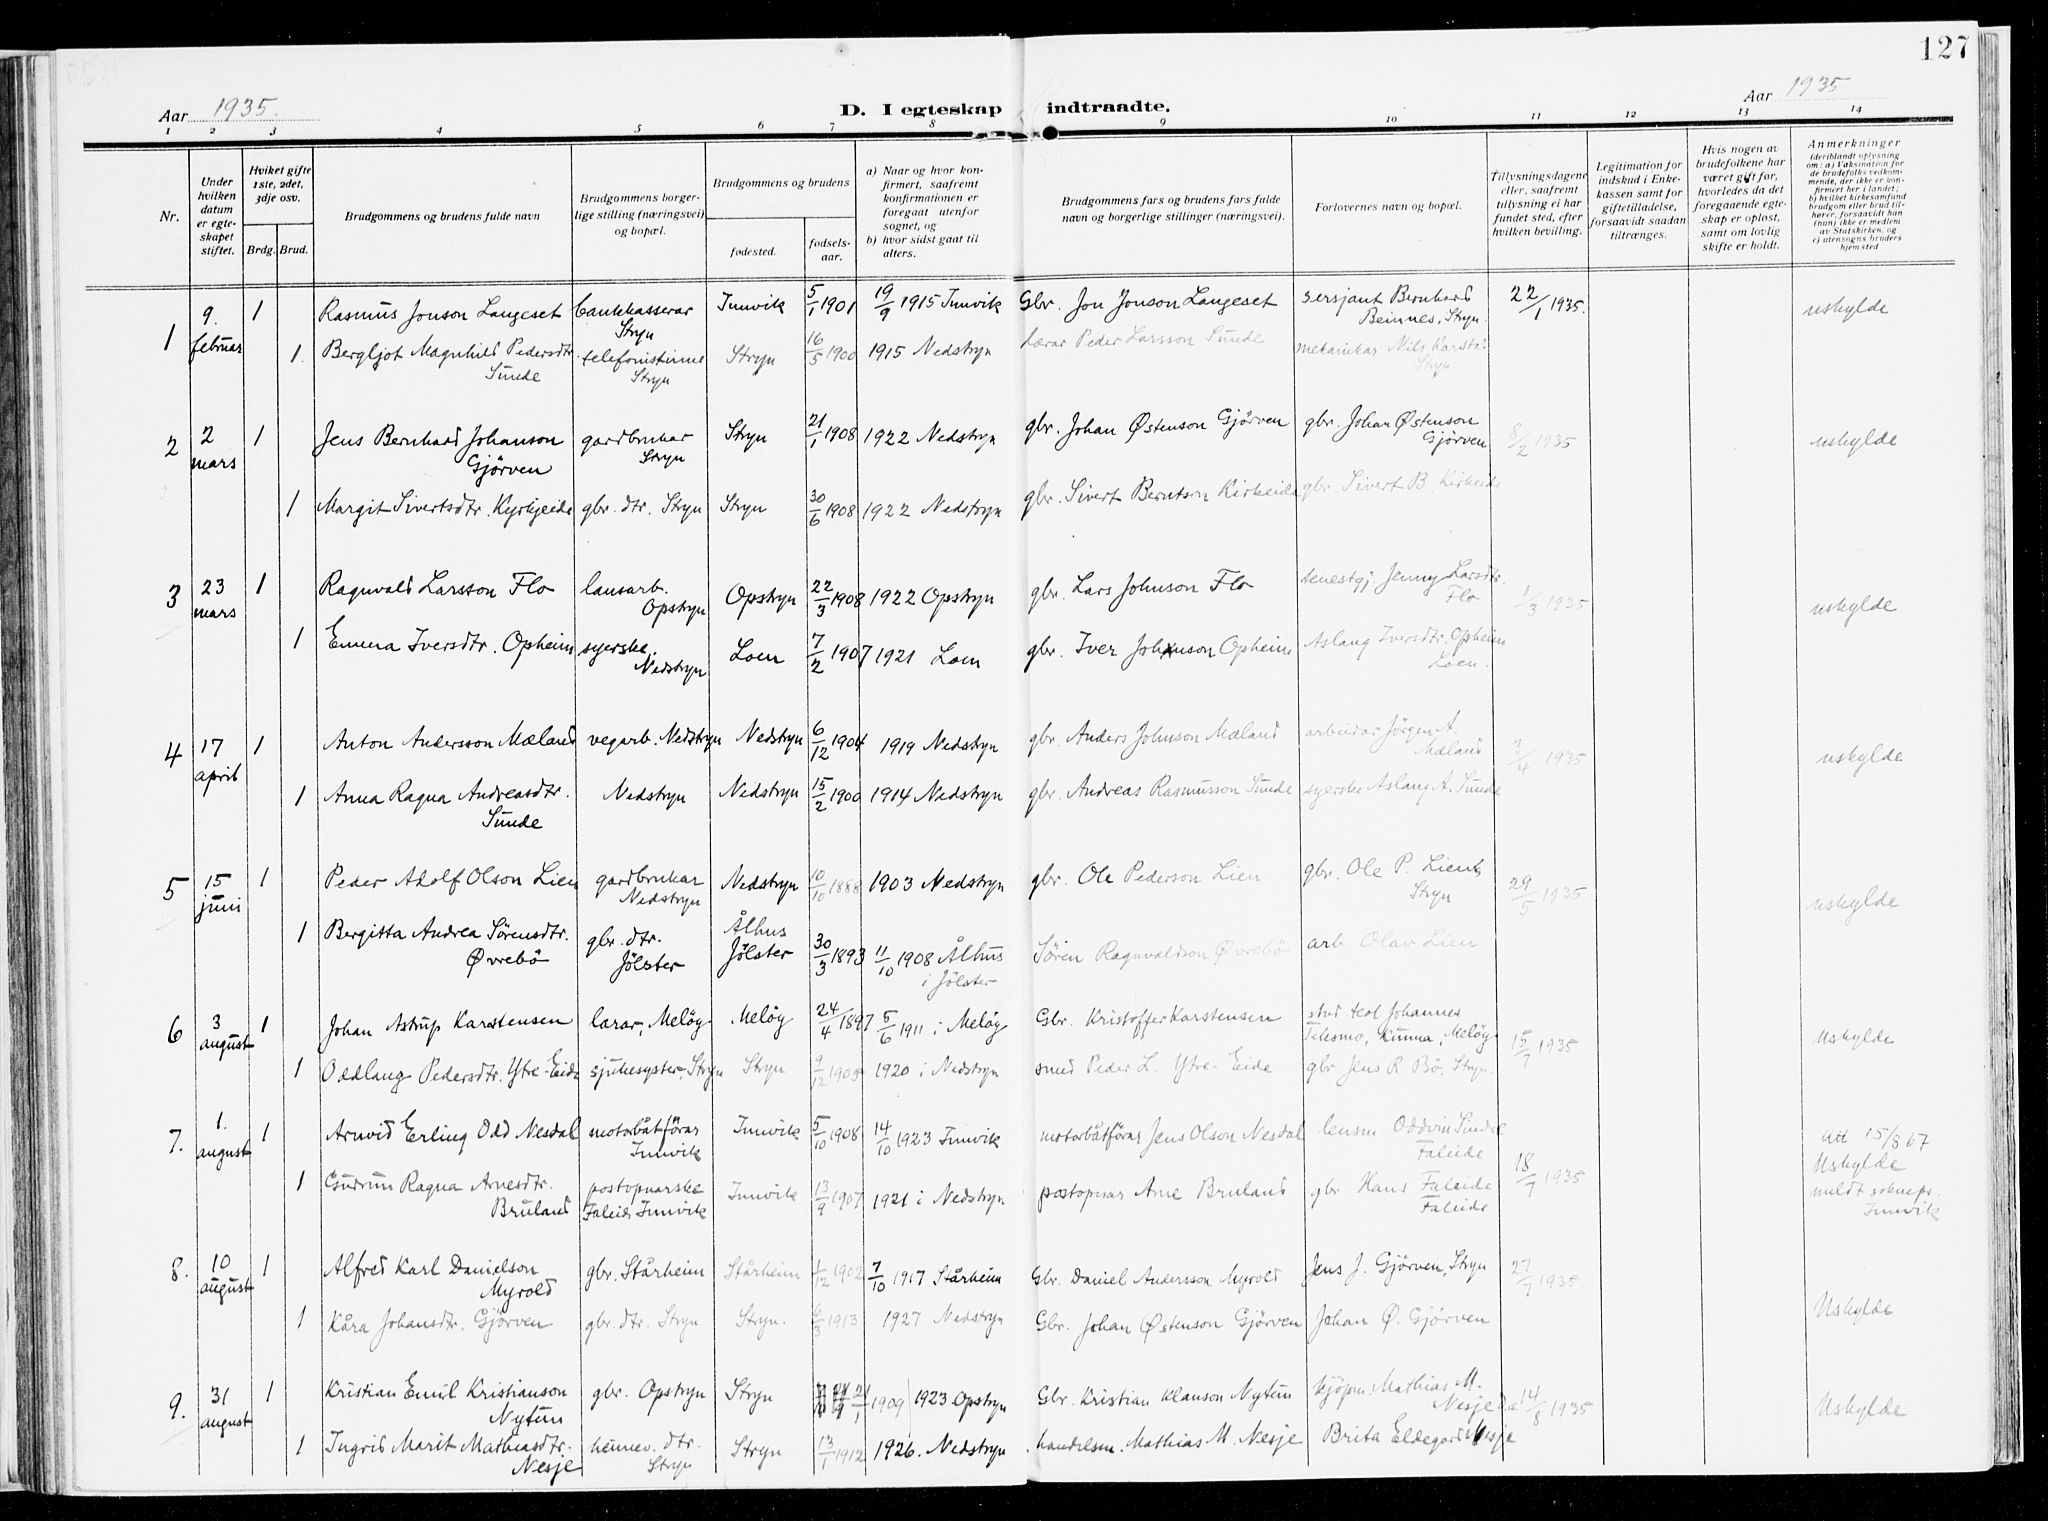 127
Aar 1935.
D. I egteskap indtraadte.
Aar 1935
1 2 3 4 5 6 7 8 9 10 11 12 13 14
Nr.
Under hvilken datum er egteskapet stiftet.
Hvilket gifte 1ste, 2det, 3dje osv.
Brdg. Brud.
Brudgommens og brudens fulde navn
Brudgommens borgerlige stilling (næringsvei) og bopæl.
Brudgommens og brudens
fødested. fødselsaar.
a) Naar og hvor konfirmert, saafremt konfirmationen er foregaat utenfor sognet, og
b) hvor sidst gaat til alters.
Brudgommens fars og brudens fars fulde navn og borgerlige stillinger (næringsvei).
Forlovernes navn og bopæl.
Tillysningsdagene eller, saafremt tillysning ei har fundet sted, efter hvilken bevilling.
Legitimation for indskud i Enkekassen samt for giftetilladelse, forsaavidt saadan tiltrænges.
Hvis nogen av brudefolkene har været gift før, hvorledes da det foregaaende egteskap er opløst, samt om lovlig skifte er holdt.
Anmerkninger
(deriblandt oplysning om: a) Vaksination for de brudefolks vedkommende, der ikke er konfirmert her i landet; b) hvilket kirkesamfund brudgom eller brud tilhører, forsaavidt han (hun) ikke er medlem av Statskirken, og c) utensogns bruders hjemsted
1 9. februar 1 Rasmus Jonson Langeset bankkasserar Stryn Innvik 5/1 1901 19/9 1915 Innvik Gbr. Jon Jonson Langeset sersjant Bernhard Beinnes, Stryn. 22/1 1935. uskylde
1. Bergljot Magnhild Pedersdtr. Sunde telefonistinne Stryn Stryn 16/5 1900 1915 Nedstryn lærar Peder Larsson Sunde mekanikar Nils Karstad Stryn
2 2 mars 1 Jens Bernhard Johanson Gjörven gardbrukar Stryn Stryn 21/1 1908 1922 Nedstryn gbr. Johan Østenson Gjörven gbr. Johan Østenson Gjörven 8/2 1935 uskylde
1 Margit Sivertsdtr. Kyrkjeide gbr. dtr. Stryn Stryn 30/6 1908 1922 Nedstryn gbr. Sivert Berntson Kirkeide gbr. Sivert B. Kirkeide
3 23 mars 1 Ragnvald Larsson Flo lausarb. Opstryn Opstryn 22/3 1908 1922 Opstryn gbr. Lars Johnson Flo tenestgj. Jenny Larsdtr. Flo 1/3 1935 uskylde
1 Emma Iversdtr. Opheim syerske. Nedstryn Loen 7/2 1907 1921 Loen gbr. Iver Johnson Opheim Aslaug Iversdtr. Opheim Loen.
4 17 april 1 Anton Andersson Mæland vegarb. Nedstryn Nedstryn 6/12 1904 1919 Nedstryn gbr. Anders Johnson Mæland arbeidar Jörgen A. Mæland 3/4 1935 uskylde
1 Anna Ragna Andreasdtr. Sunde Nedstryn Nedstryn 15/2 1900 1914 Nedstryn gbr. Andreas Rasmusson Sunde syerske Aslaug A. Sunde
5 15 juni 1 Peder Adolf Olson Lien gardbrukar Nedstryn Nedstryn 10/10 1888 1903 Nedstryn gbr. Ole Pederson Lien gbr. Ole P. Lien, Stryn 29/5 1935. uskylde
1 Bergitta Andrea Sörensdtr. Øvrebö gbr. dtr. Jölster Ålhus Jölster 30/3 1893 11/10 1908 Ålhus i Jölster Sören Ragnvaldson Øvrebö arb. Olav Lien
6 3 august 1 Johan Astrup Karstensen lærar, Melöy Melöy 24/4 1897 5/6 1911 i Melöy Gbr. Kristoffer Karstensen stud. teol Johannes Telesmo, Kunna, Melöy 15/7 1935 Uskylde
1 Oddlaug Pedersdtr. Ytre-Eide sjukesyster, Stryn Stryn 9/12 1905 1920 i Nedstryn smed Peder L. Ytre-Eide gbr Jens R. Bö, Stryn.
7. 1. august 1 Arnvid Erling Odd Nesdal motorbåtförar Innvik Innvik 5/10 1908 14/10 1923 Innvik motorbåtförar Jens Olson Nesdal lensm. Oddvin Sindre Faleide 18/7 1935 Att. 15/8 67 Uskylde meldt soknepr. Innvik
1 Gudrun Ragna Arnesdtr. Bruland postopnarske Faleide Innvik Innvik 13/9 1907 1921 i Nedstryn postopnar Arne Bruland gbr. Hans Faleide Faleide
8. 10 august 1 Alfred Karl Danielson Myrold gbr. Stårheim Stårheim 1/12 1902 7/10 1917 Stårheim Gbr. Daniel Andersson Myrold Jens J. Gjörven, Stryn 27/7 1935. Uskylde
1 Kåra Johansdtr. Gjörven gbr. dtr. Stryn Stryn. 6/3 1913 1927 Nedstryn Gbr. Johan Østenson Gjörven Johan Ø. Gjörven
9. 31 august 1 Kristian Emil Kristianson Nytun gbr. Opstryn Stryn 21/1 1909 1923 Opstryn Gbr. Kristian Klauson Nytun kjöpm. Mathias M. Nesje 14/8 1935 Uskylde
1 Ingrid Marit Mathiasdtr. Nesje heimev. dtr. Stryn Stryn 13/1 1912 1926. Nedstryn handelsm. Mathias M. Nesje Brita Eldegard Nesje